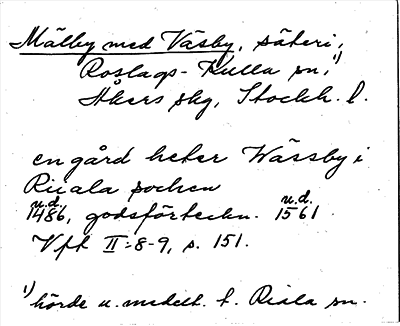 Mälby med Väsby, säteri,
Roslags-Kulla sn,1)
Åkers skg, Stockh. l.
en gård heter Wässby i
Riiala sochen
u.d. u.d.
1486, godsförteckn. 1561.
Vft II:8-9, s. 151.
1) hörde u. medelt. t. Riala sn.